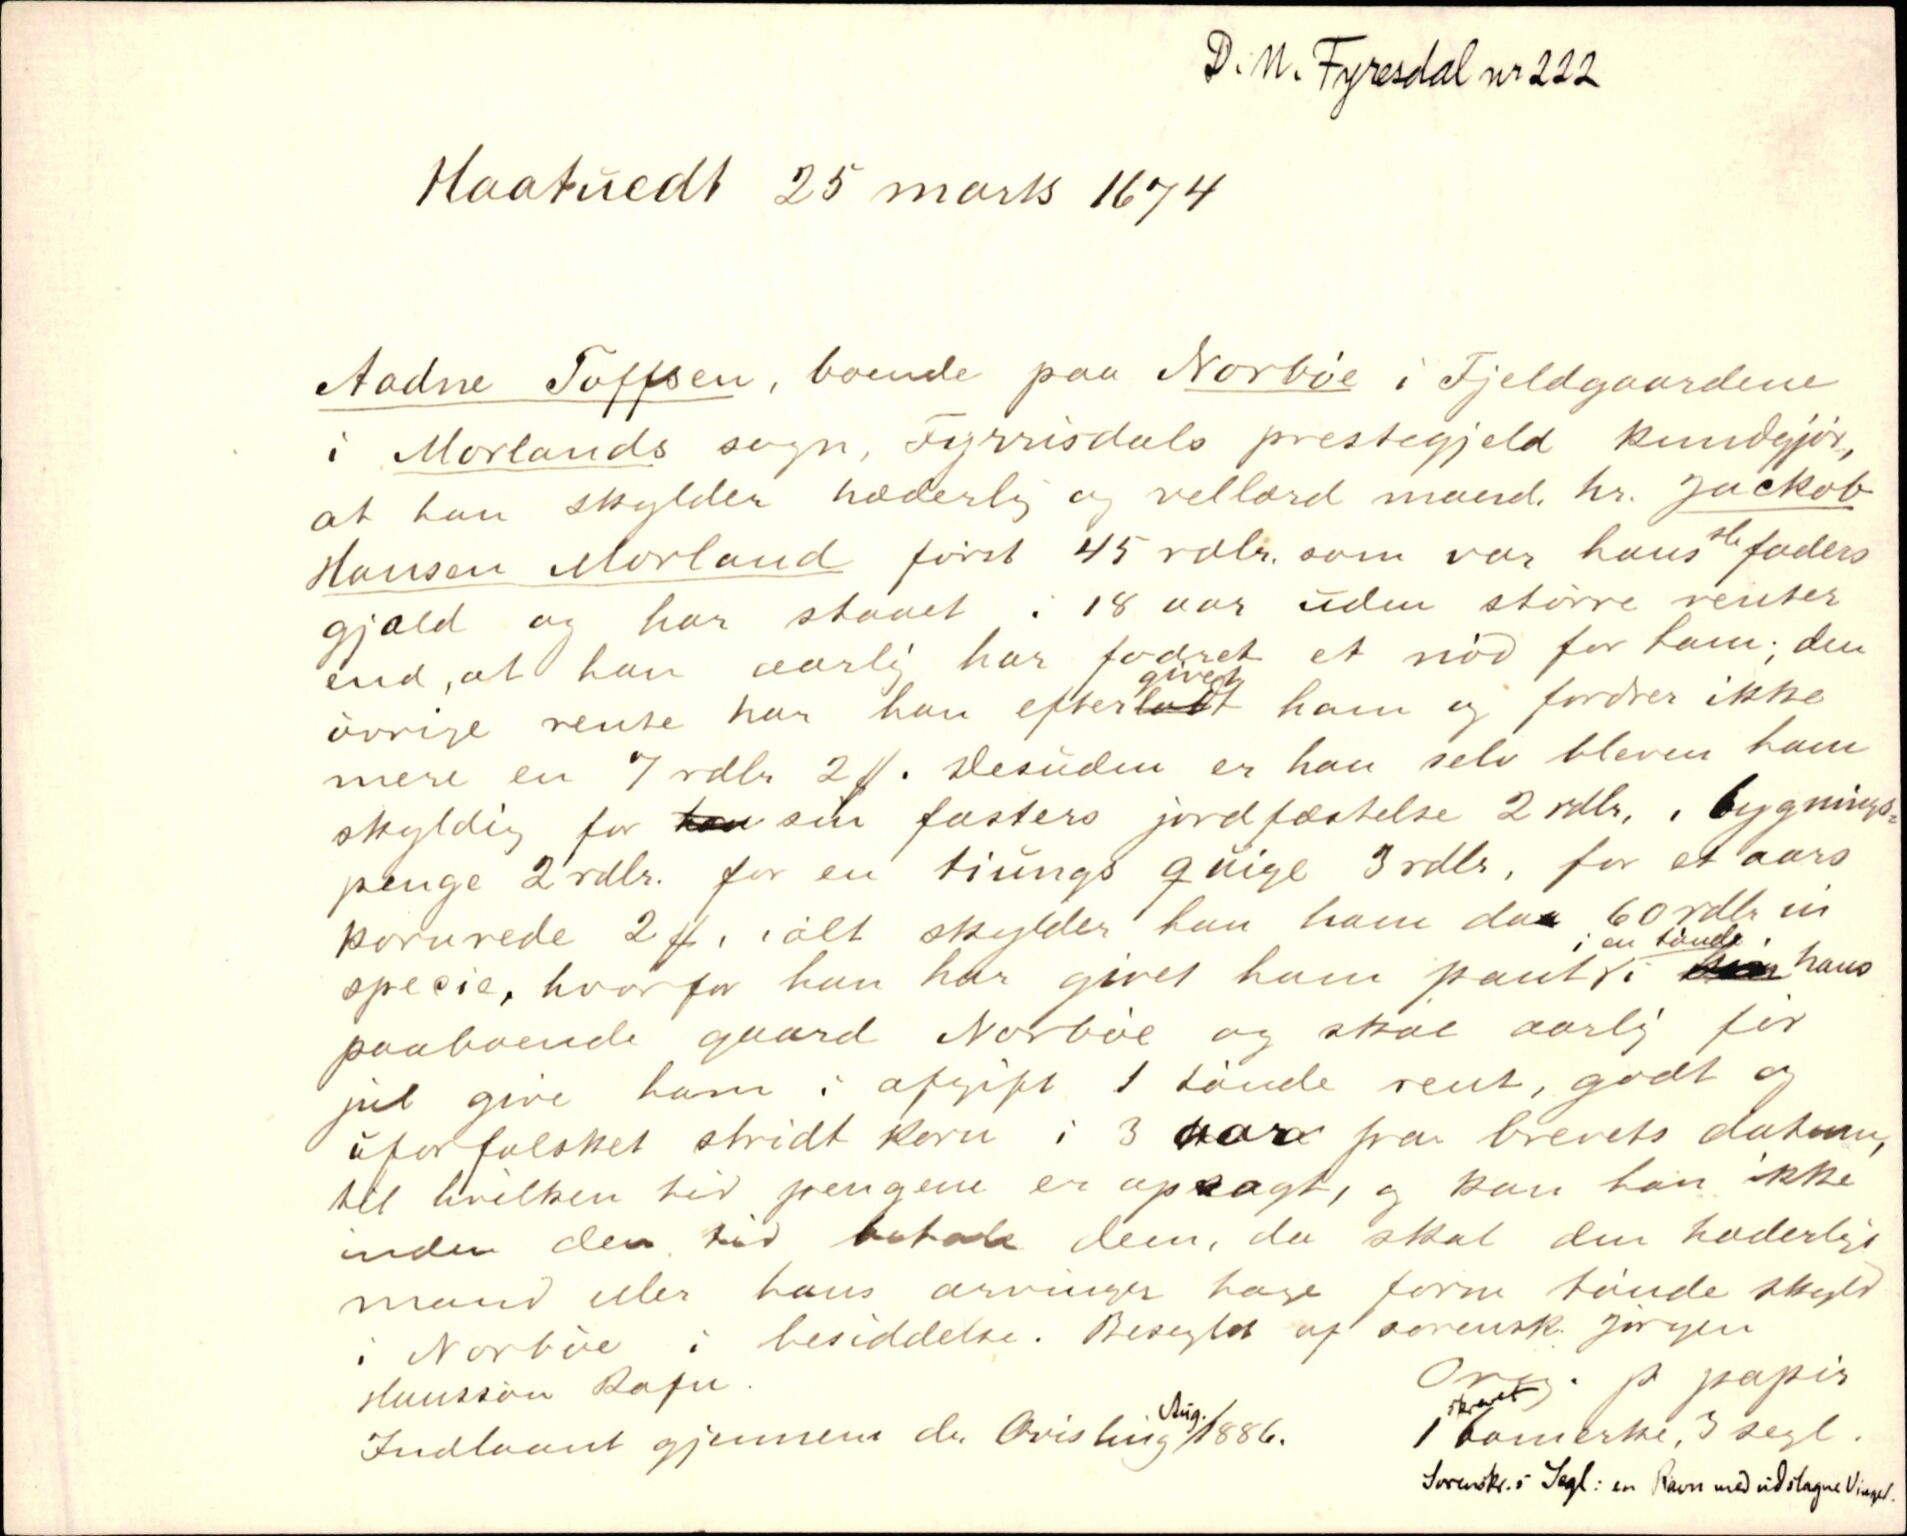 D. N. Fyresdal nr 222
Haatuedt 25 marts 1674
Aadne Toffsen, boende paa Norbøe i Fjeldgaardene
i Morlands sogn, Fyrrisdals prestegjeld kundgjør,
at han skylder hæderlig og vellærd mand. hr. Jackob
Hansen Morland først 45 rdlr. som var hans sle faders
gjæld og har staaet i 18 aar uden større renter
end, at han aarlig har fodret et nød for ham; den
øvrige rente har han efterladt givet ham og fordrer ikke
mere en 7 rdlr 2 ff. Desuden er han selv bleven ham
skyldig for han sin fasters jordfæstelse 2 rdlr. i bygnings-
penge 2 rdlr. for en tiungs quige 3 rdlr, for et aars
kornrede 2 ff, ialt skylder han ham da 60 rdlr in
specie, hvorfor han har givet ham pant i en tønde i hans
paaboende gaard Norbøe og skal aarlig før
jul give ham i afgift 1 tønde rent, godt og
uforfalsket stridt korn i 3 aar fra brevets datum,
til hvilken tid pengene er opsagt, og kan han ikke
inden den tid betale dem, da skal den hæderlige
mand eller hans arvinger have forne tønde skyld
i Norbøe i besiddelse. Beseglet af sorensk. Jørgen
Hanssøn Rafn.
Orig. p papir
Indlaant gjennem dr. Qvisling Aug. 1886.
1 skrevet bomerke, 3 segl.
Sorenskr.s Segl: en Ravn med udslagne Vinger.